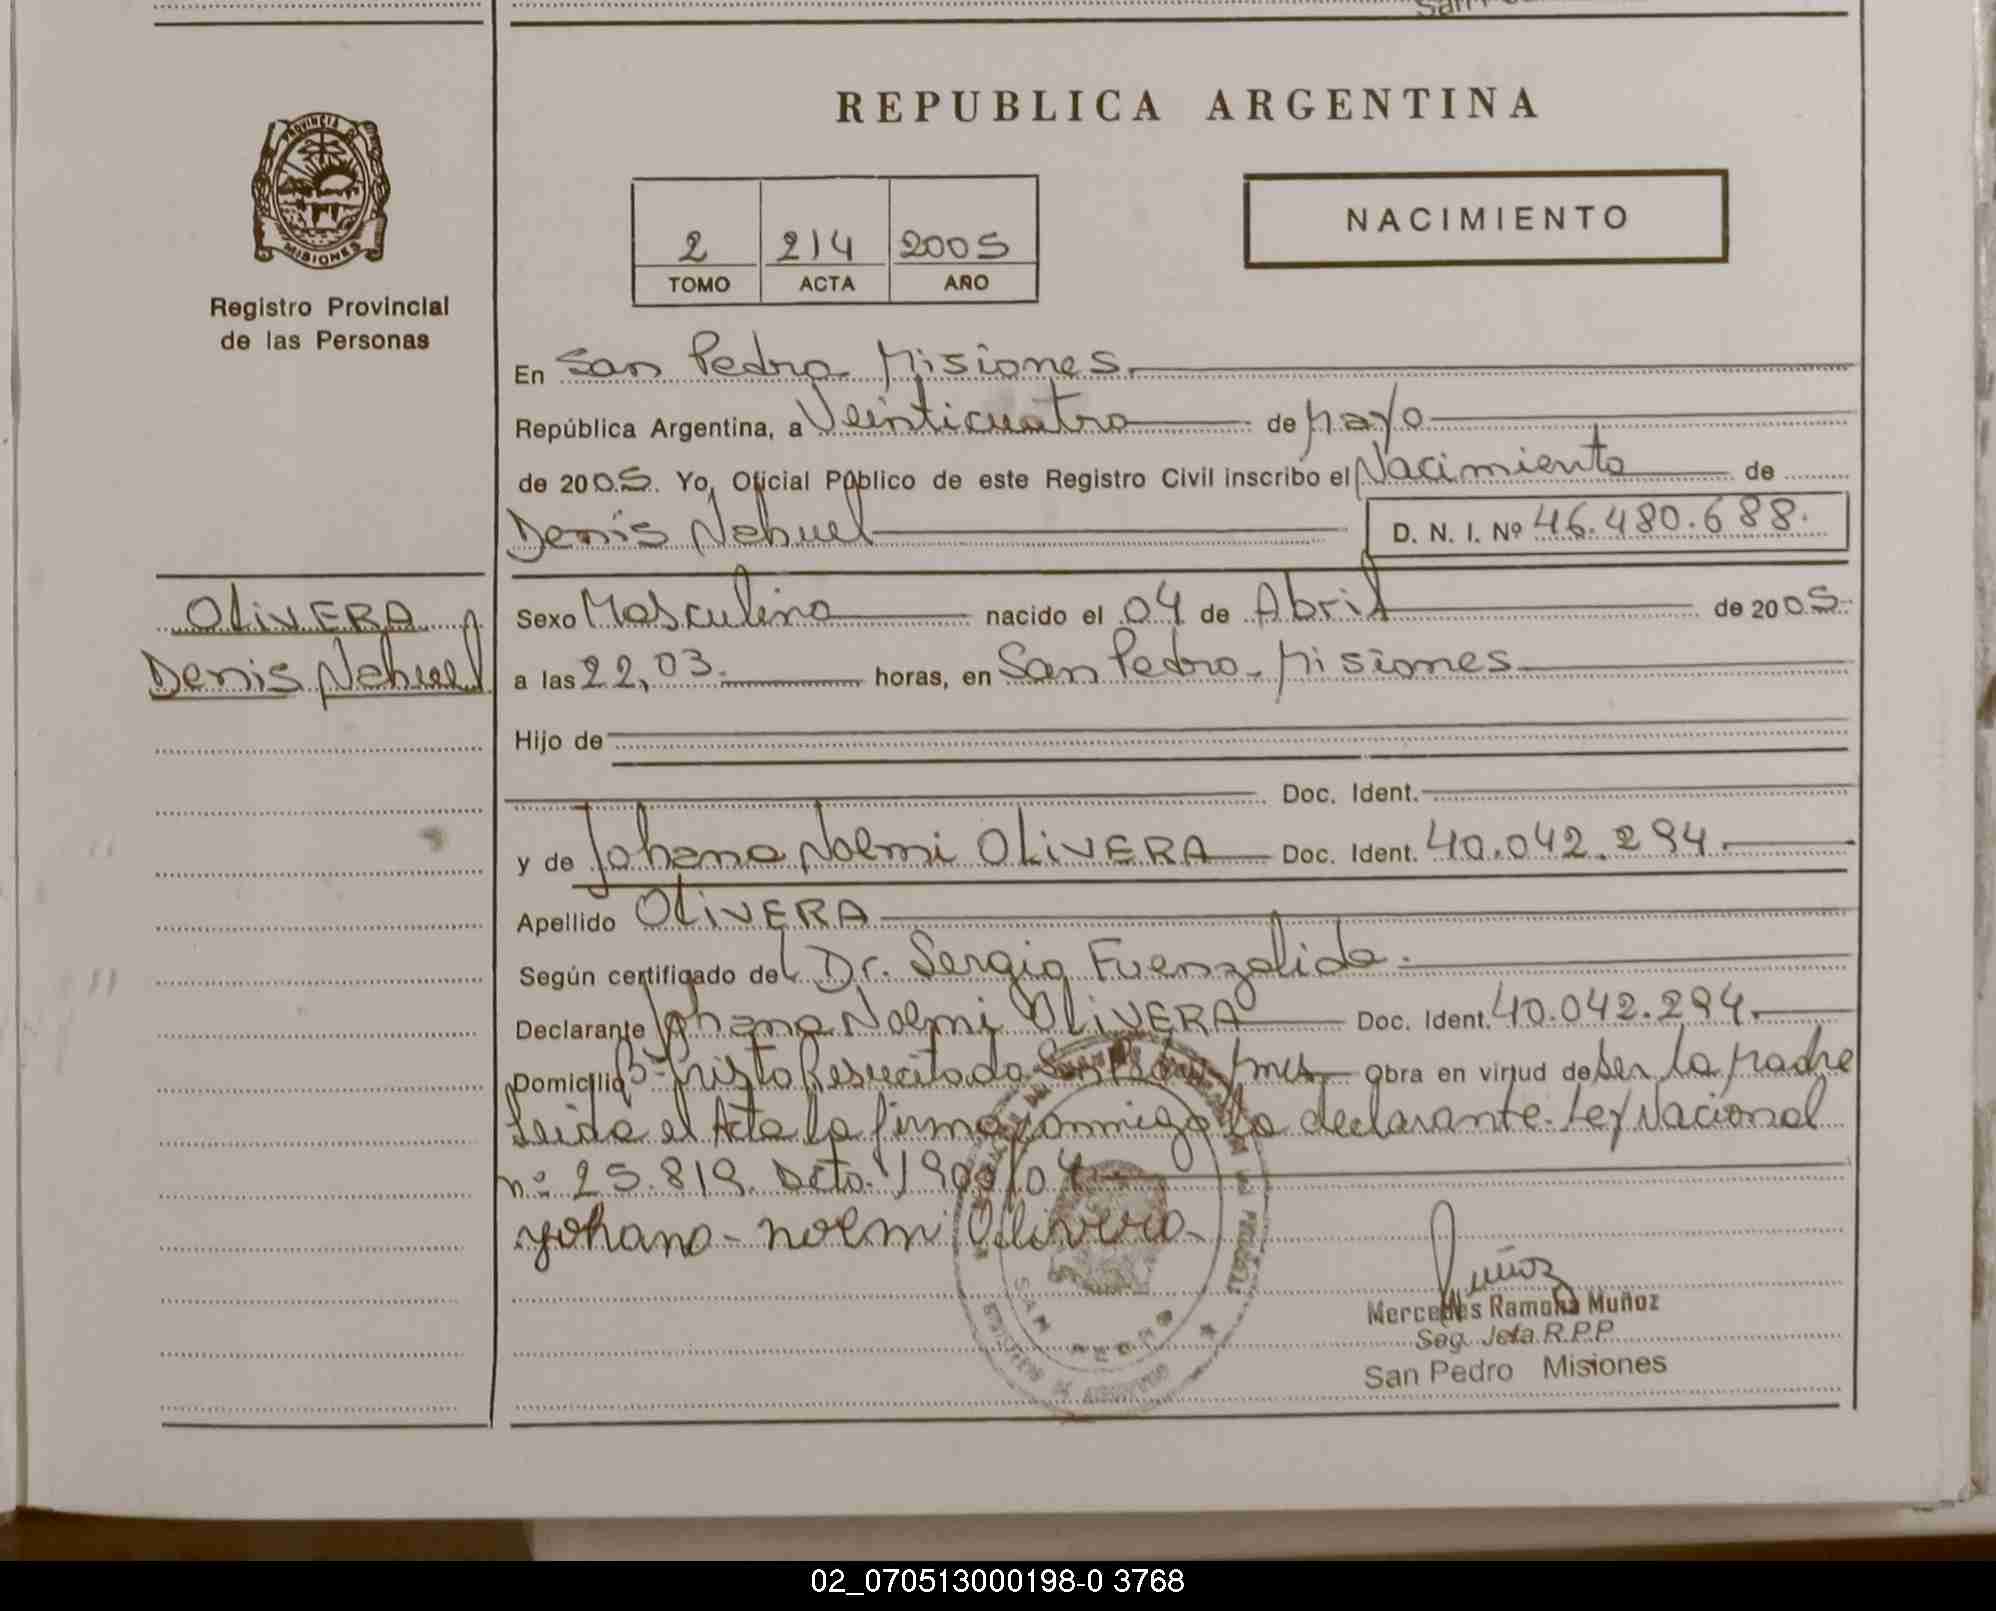 REPUBLICA ARGENTINA
PROVINCIA DE
MISIONES
Registro Provincial
de las Personas
2 214 2005
TOMO ACTA AÑO
NACIMIENTO
En San Pedro Misiones.
República Argentina, a Veinticuatro de Mayo
de 2005. Yo, Oficial Público de este Registro Civil inscribo el Nacimiento de
Denis Nehuel D. N. I. Nº 46.480.688.
OLIVERA
Denis Nehuel
Sexo Masculino nacido el 04 de Abril de 2005
a las 22,03. horas, en San Pedro - Misiones
Hijo de
Doc. Ident.
y de Johana Noemi OLIVERA Doc. Ident. 40.042.294.
Apellido OLIVERA
Según certificado del Dr. Sergio Fuenzalida.
Declarante Johana Noemi OLIVERA Doc. Ident. 40.042.294.
Domicilio Bº Cristo Resucitado San Pedro Mnes. Obra en virtud de ser la Madre
Leida el Acta la firma conmigo la declarante. Ley Nacional
nº 25.819. Dcto. 1900/04
yohana - noemi Olivera
Muñoz
Mercedes Ramona Muñoz
Seg. Jefa R.P.P.
San Pedro Misiones
SAN PEDRO
02_070513000198-0 3768